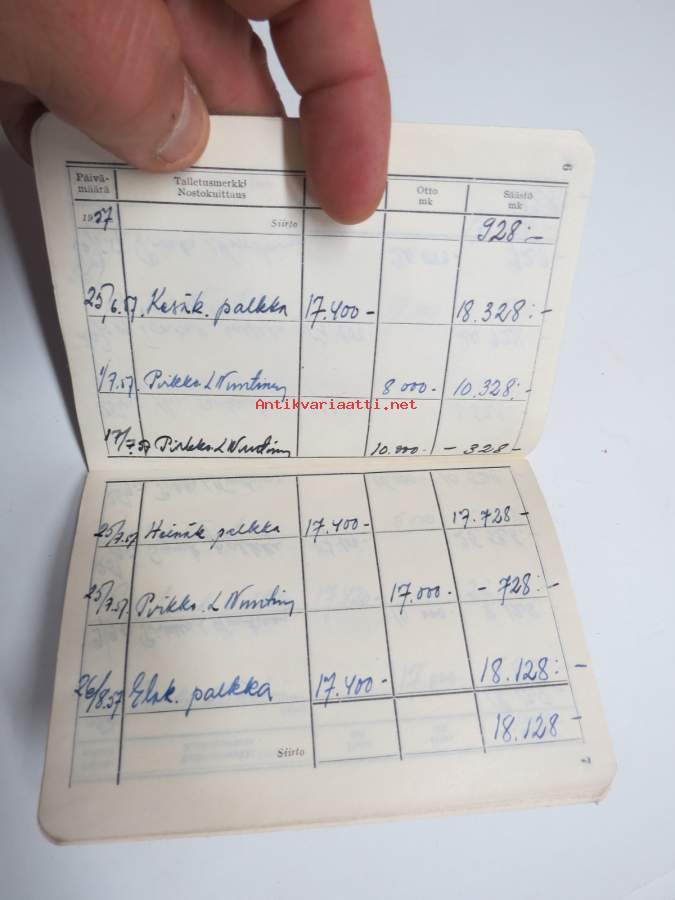 6
Päivä-määrä Talletusmerkki Nostokuittaus Otto mk Säästö mk
1957 Siirto 928:-
25/6.57. Kesäk. palkka 17.400- 18.328:-
1/7.57. Pirkko L Nurminen 8 000- 10.328:-
Antikvariaatti.net
17/7.57 Pirkko L Nurminen 10.000.- - 328-
25/7.57 Heinäk. palkka 17.400- 17.728-
25/7.57. Pirkko L Nurminen 17.000.- - 728:-
26/8.57 Elok. palkka 17.400- 18.128:-
Siirto 18.128-
7